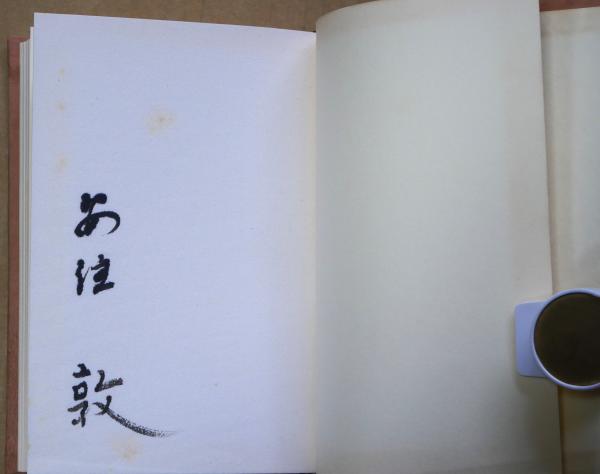 安住 敦